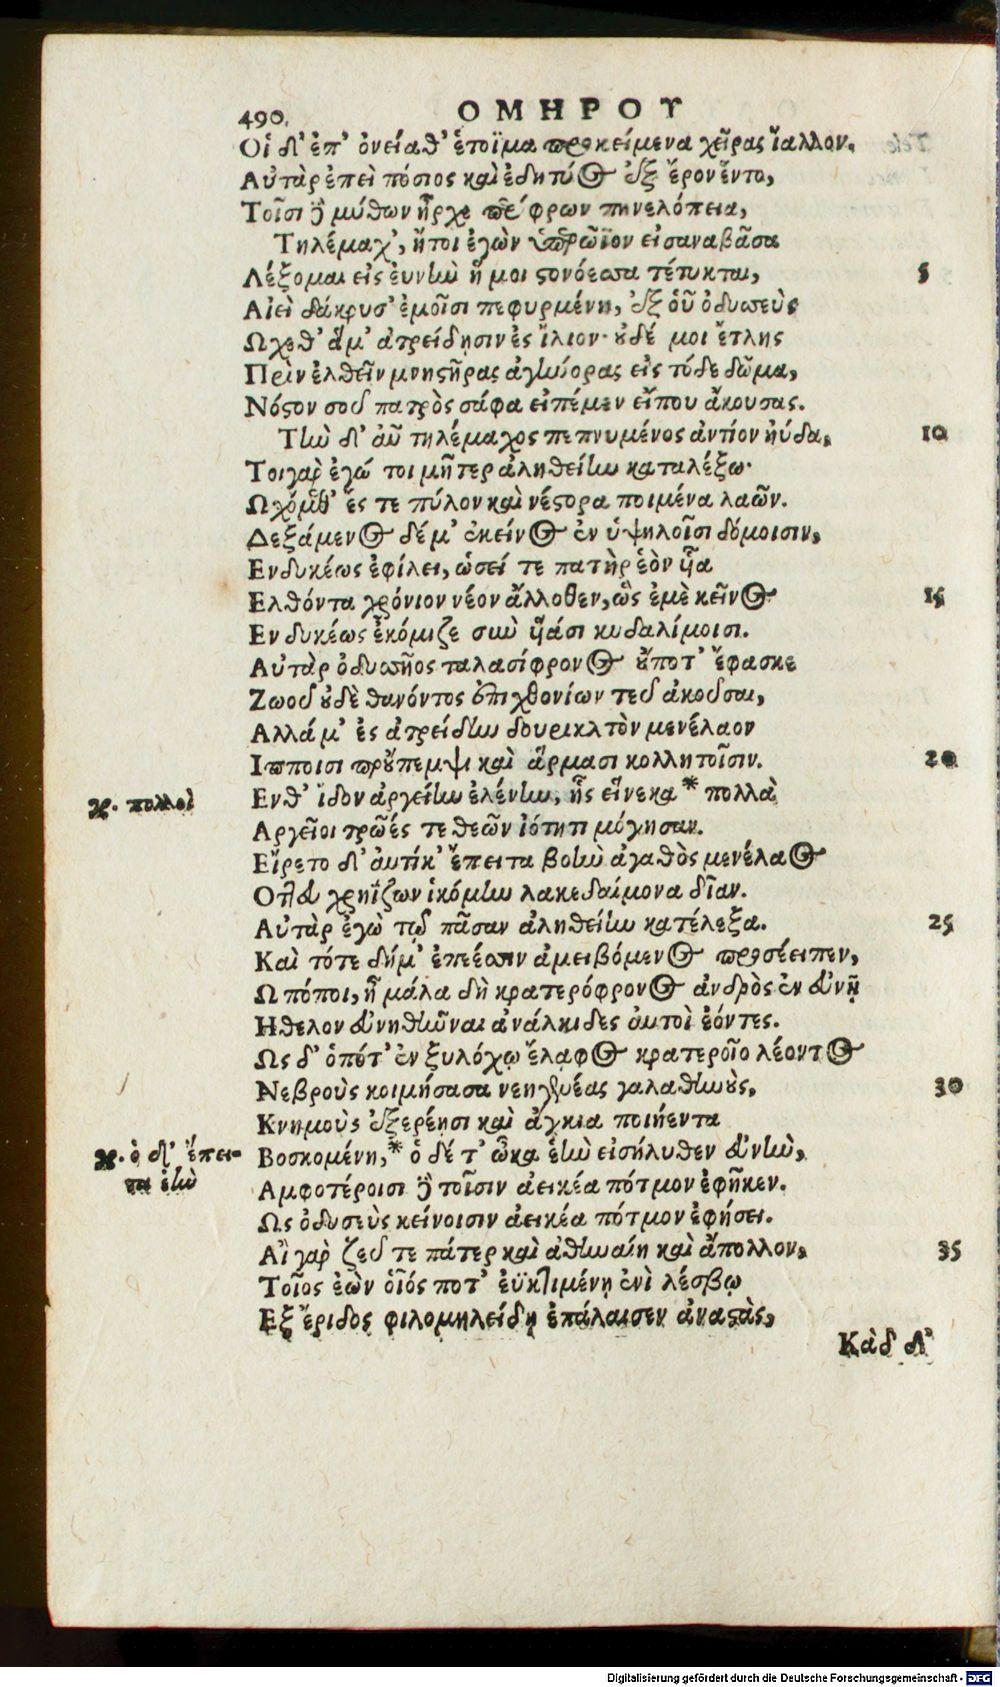 490.
ΟΜΗΡΟΥ
Οἱ δ' ἐπ' ὀνείαθ' ἑτοῖμα προκείμενα χεῖρας ἴαλλον.
Αὐτὰρ ἐπεὶ πόσιος καὶ ἐδητύος ἐξ ἔρον ἕντο,
Τοῖσι δὲ μύθων ἦρχε περίφρων πηνελόπεια,
Τηλέμαχ', ἤτοι ἐγὼν ὑπερώϊον εἰσαναβᾶσα
Λέξομαι εἰς εὐνὴν ἥ μοι στονόεσσα τέτυκται, 5
Αἰεὶ δάκρυσ' ἐμοῖσι πεφυρμένη, ἐξ οὗ ὀδυσσεὺς
Ωχεθ' ἅμ' ἀτρείδῃσιν ἐς ἴλιον· οὐδέ μοι ἔτλης
Πρὶν ἐλθεῖν μνηστῆρας ἀγήνορας εἰς τόδε δῶμα,
Νόστον σοῦ πατρὸς σάφα εἰπέμεν εἴπου ἄκουσας.
Τὴν δ' αὖ τηλέμαχος πεπνυμένος ἀντίον ηὔδα, 10
Τοιγὰρ ἐγώ τοι μῆτερ ἀληθείην καταλέξω·
Ωχόμεθ' ἔς τε πύλον καὶ νέστορα ποιμένα λαῶν.
Δεξάμενος δέ μ' ἐκεῖνος ἐν ὑψηλοῖσι δόμοισιν,
Ενδυκέως ἐφίλει, ὡσεί τε πατὴρ ἑὸν υἷα
Ελθόντα χρόνιον νέον ἄλλοθεν, ὣς ἐμὲ κεῖνος 15
Ενδυκέως ἐκόμιζε σὺν υἱάσι κυδαλίμοισι.
Αὐτὰρ ὀδυσσῆος ταλασίφρονος οὔποτ' ἔφασκε
Ζωοῦ οὐδὲ θανόντος ἐπιχθονίων τεῦ ἀκοῦσαι,
Αλλά μ' ἐς ἀτρείδην δουρικλτὸν μενέλαον
Ιπποισι προὔπεμψι καὶ ἅρμασι κολλητοῖσιν. 20
γρ. πολλοὶ
Ενθ' ἴδον ἀργείην ἑλένην, ἧς εἵνεκα * πολλὰ
Αργεῖοι τρῶές τε θεῶν ἰότητι μόγησαν.
Εἴρετο δ' αὐτίκ' ἔπειτα βοὴν ἀγαθὸς μενέλαος
Οττευ χρηΐζων ἱκόμην λακεδαίμονα δῖαν.
Αὐτὰρ ἐγὼ τῷ πᾶσαν ἀληθείην κατέλεξα. 25
Καὶ τότε δή μ' ἐπέεσσιν ἀμειβόμενος προσέειπεν,
Ω πόποι, ἦ μάλα δὴ κρατερόφρονος ἀνδρὸς ἐν εὐνῇ
Ηθελον εὐνηθῆναι ἀνάλκιδες αὐτοὶ ἐόντες.
Ως δ' ὁπότ' ἐν ξυλόχῳ ἔλαφος κρατεροῖο λέοντος
Νεβροὺς κοιμήσασα νεηγενέας γαλαθηνοὺς, 30
Κνημοὺς ἐξερέησι καὶ ἄγκια ποιήεντα
γρ. ὁ δ' ἔπει-
τα ἑὴν
Βοσκομένη, * ὁ δέ τ' ὦκα ἑὴν εἰσήλυθεν εὐνὴν,
Αμφοτέροισι δὲ τοῖσιν ἀεικέα πότμον ἐφῆκεν.
Ως ὀδυσεὺς κείνοισιν ἀεικέα πότμον ἐφήσει.
Αἲ γὰρ ζεῦ τε πάτερ καὶ ἀθηναίη καὶ ἄπολλον, 35
Τοῖος ἐὼν οἷός ποτ' ἐϋκτιμένῃ ἐνὶ λέσβῳ
Εξ ἔριδος φιλομηλείδῃ ἐπάλαισεν ἀναστὰς,
Κὰδ δ'
Digitalisierung gefördert durch die Deutsche Forschungsgemeinschaft - DFG